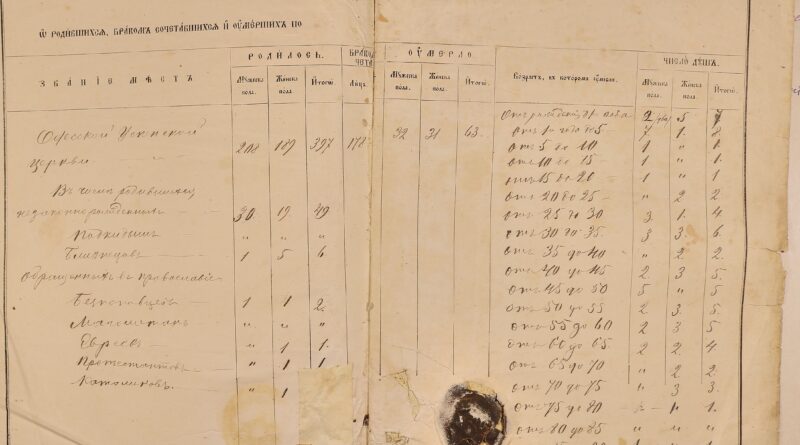 Ѡ РОДИВШИХСЯ, БРАКОМЪ СОЧЕТАВШИХСЯ И ОУМЕРШИХЪ ПО
ЗВАНІЕ МѢСТЪ
РОДИЛОСЬ.
Мужеска пола.
Женска пола.
Итого
БРАКОМ
ЧЕТА
Лицъ
ОУМЕРЛО
Мужеска пола.
Женска пола.
Итого.
Возрастъ, въ которомъ умерли.
ЧИСЛО ДУШЪ.
Мужеска пола.
Женска пола.
Итого.
Одесской Успенской 208 189 397 178 32 31 63
церкви
Въ числѣ родившихся
незаконнорожденныхъ 30. 19. 49
Подкидыш „ „ „
Близнецовъ 1 5 6
Обращенныхъ въ православіе
1 1 2.
Магометанъ „ „ „
Евреевъ „ 1 1.
Протестантовъ „ 1 1
Католиковъ. „ 1
Отъ рожденія 2 5 7
Отъ 1 года до 5 7 1. 8.
Отъ 5 до 10 1 „ 1.
Отъ 10 до 15 1 „ 1
Отъ 15 до 20 1 „ 1
Отъ 20 до 25 „ 2 2
Отъ 25 до 30 3. 1. 4.
Отъ 30 до 35. 3 3. 6.
Отъ 35 до 40 „ 2 2.
Отъ 40 до 45 2. 3 5.
Отъ 45 до 50 5 „ 5.
Отъ 50 до 55 2 3. 5.
Отъ 55 до 60 2 3 5.
Отъ 60 до 65 2 2. 4
Отъ 65 до 70 „ 2 2.
Отъ 70 до 75 „ 3 3.
Отъ 75 до 80 1 1.
Отъ 80 до 85 „ „ „